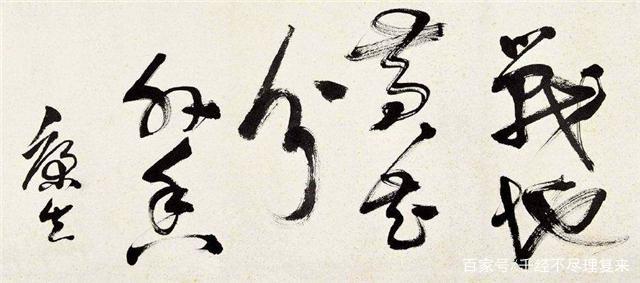 战地
黄花
分
外香
康生
百家号/王经不尽理复来